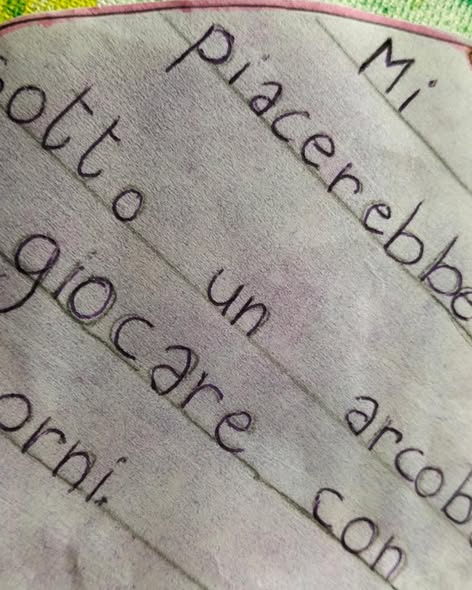 Mi
piacerebbe
sotto un arcob
giocare con
orni.